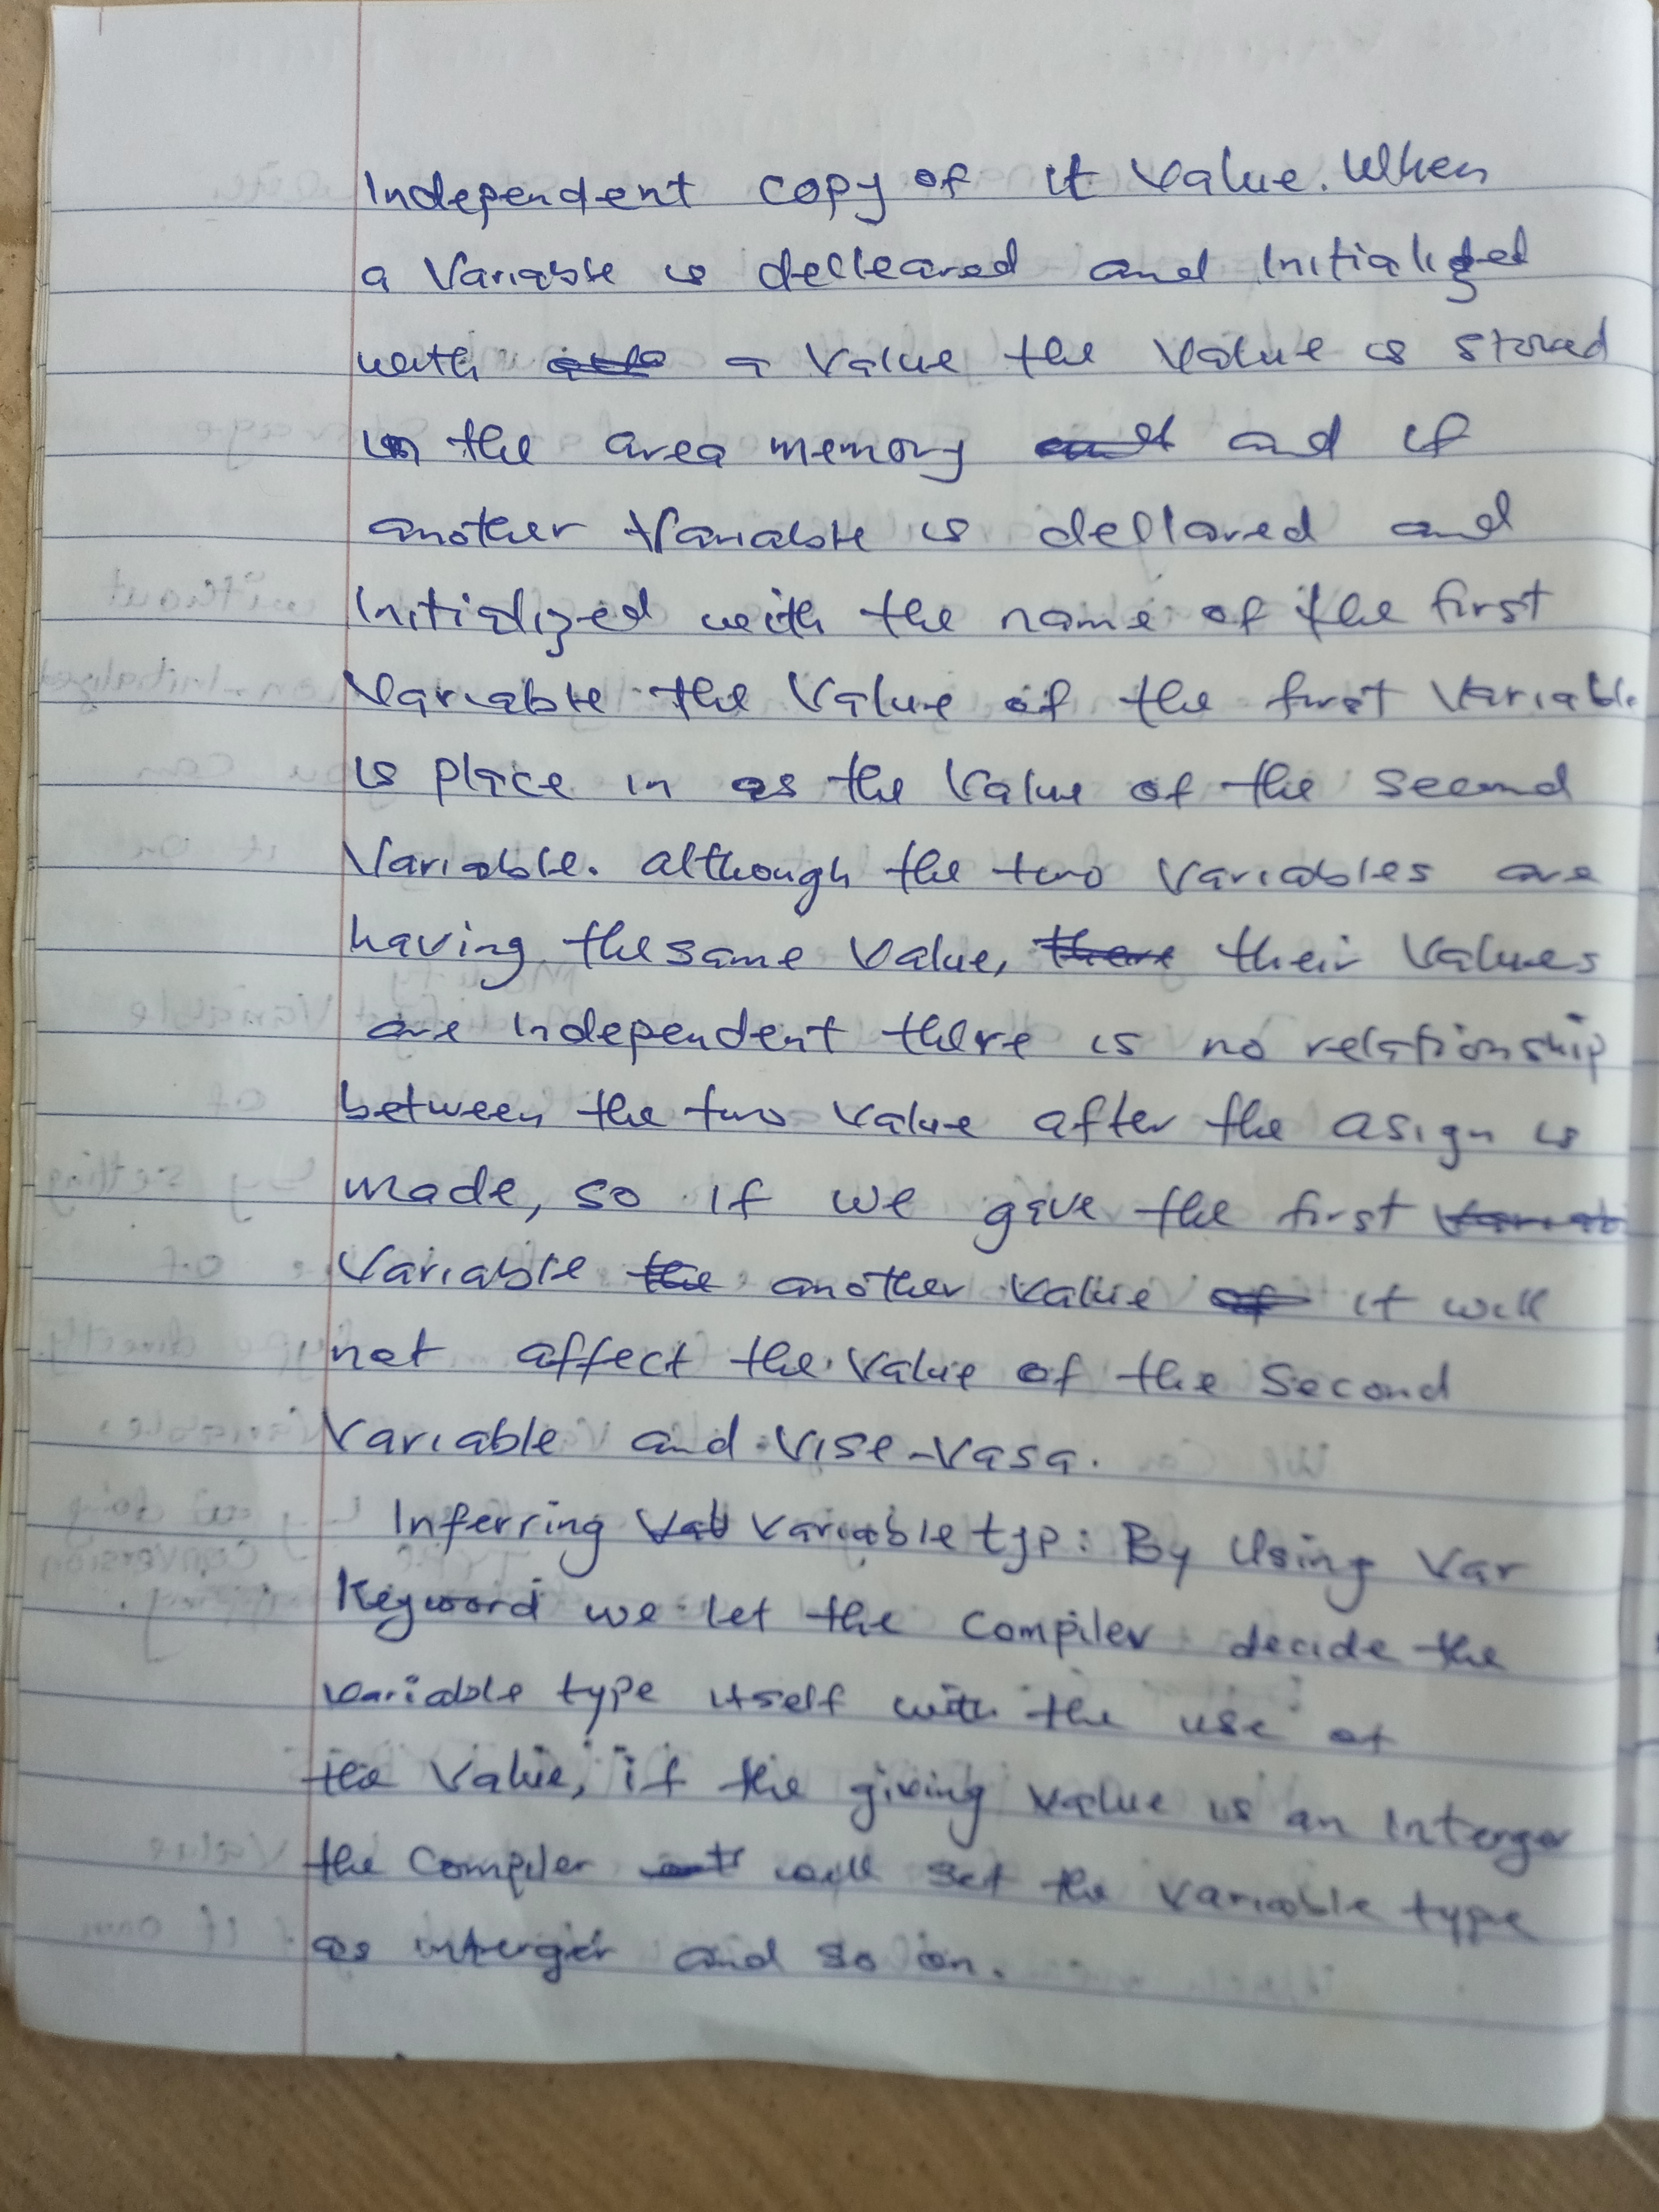 Independent copy of it value. When
a Variable is delleared and Initialized
with a value the value is stored
in the area memory and if
another Variable is dellared and
Initialized with the name of the first
Variable the value of the first Variable
is place in as the value of the second
Variable. although the two variables are
having the same value, there their values
are Independent there is no relationship
between the two value after the asign is
made, so if we give the first variab
Variable the another value of it will
not affect the value of the second
Variable and vise-vasa.
Inferring Vab variable typ: By Using Var
Keyword we let the compiler decide the
variable type itself with the use of
the value, if the giving value is an Interger
the compiler will set the variable type
as interger and so on.